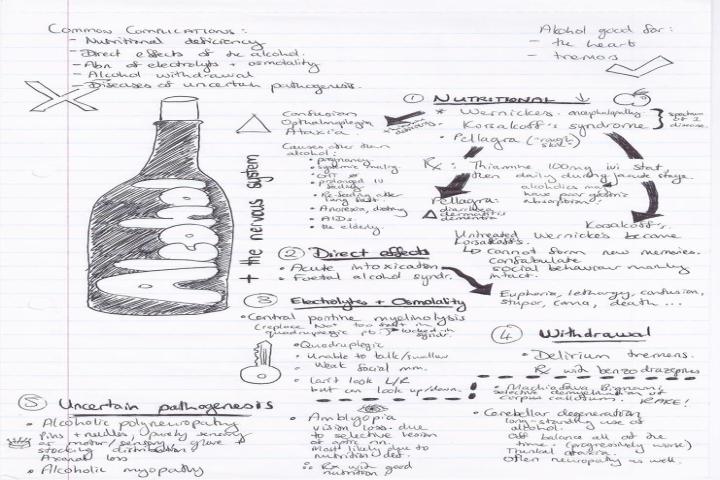 Common Complications:
- Nutritional deficiency
- Direct effects of the alcohol.
- Abn of electrolytes + osmolality
- Alcohol withdrawal
- Diseases of uncertain pathogenesis.
Alcohol good for:
- the heart
- tremors
Alcohol
+ the nervous system
① NUTRITIONAL ↓
* Wernicke's encephalopathy
Korsakoff's syndrome
spectrum of 1 disease.
• Pellagra (= "rough skin")
Confusion
Opthalmoplegia
Ataxia
Causes other than alcohol:
• pregnancy
• systemic malig.
• prolonged IV feeding
• Re-feeding after long fast.
• Anorexia, dieting
• AIDs.
• the elderly
Rx: Thiamine 100mg ivi stat
then daily during acute stage.
alcoholics may
have poor gastric
absorption.
Pellagra:
diarrhoea
dermatitis
dementia
Untreated Wernicke's become
Korsakoff's.
Korsakoff's.
↳ cannot form new memories.
confabulate
social behaviour mainly
intact.
② Direct effects
• Acute intoxication
• Foetal alcohol syndr.
Euphoria, lethargy, confusion,
stupor, coma, death ...
③ Electrolytes + Osmolality
• Central pontine myelinolysis
(replace Na+ too fast in
quadruplegic pt.) → locked in
syndr.
• Quadruplegic
• Unable to talk/swallow
• Weak facial mm.
• Can't look L/R
but can look up/down.
④ Withdrawal
• Delirium tremens.
Rx with benzodiazepines
• Machiafava Bignami;
selective demyelination of
corpus callosum.
RARE!
⑤ Uncertain pathogenesis
• Alcoholic polyneuropathy
Pins + needles, purely sensory
or motor/sensory, glove +
stocking distribution
Axonal loss
• Alcoholic myopathy
• Amblyopia
vision loss due
to selective lesion
of optic n.
Most likely due to
nutrition def.
∴ Rx with good
nutrition
• Cerebellar degeneration
long-standing use of
alcohol.
Off balance all of the
time. (progressively worse)
Truncal ataxia.
Often neuropathy as well.